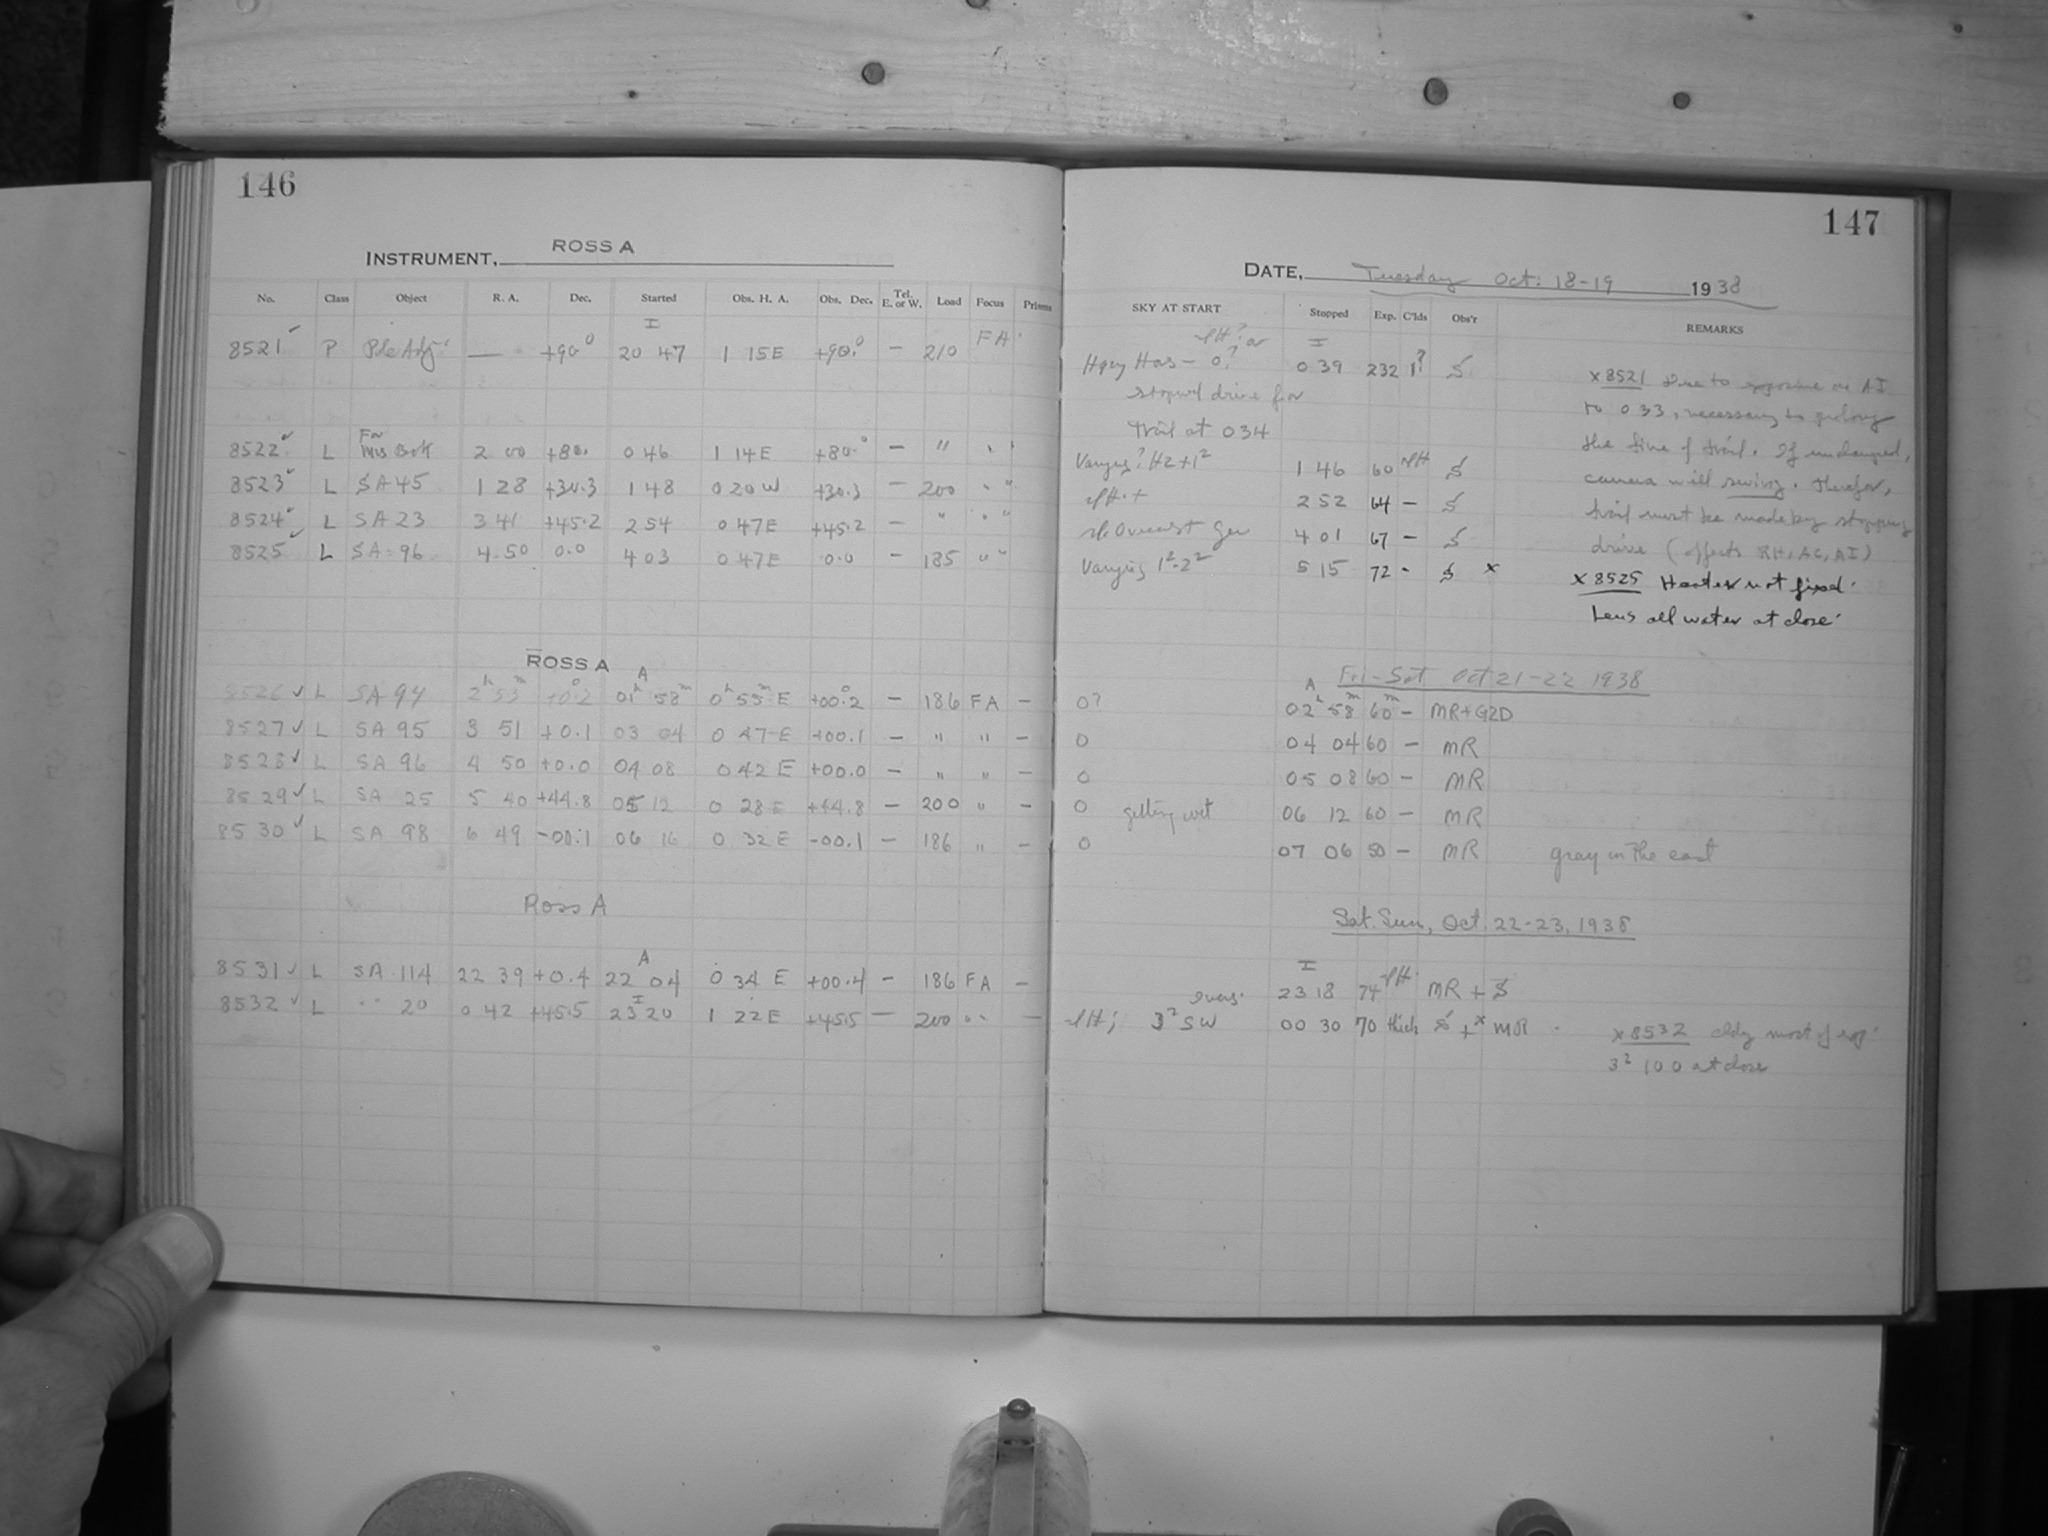 146
INSTRUMENT, ROSS A
No. Class Object R. A. Dec. Started Obs. H. A. Obs. Dec. Tel. E. or W. Load Focus Prisms
I
8521 P Pole Adj. — +90° 20 47 1 15E +90.° — 210 FA
8522 L For Miss 2 00 +80. 0 46 1 14E +80.° — " "
8523 L SA 45 1 28 +30.3 1 48 0 20 W +30.3 — 200 " "
8524 L SA 23 3 41 +45.2 2 54 0 47E +45.2 — " " "
8525 L SA 96 4 50 0.0 4 03 0 47E 0.0 — 185 " "
ROSS A
A
8526 L SA 94 2h 53m +0.2 01h 58m 0h 55m E +00.2 — 186 FA —
8527 L SA 95 3 51 +0.1 03 04 0 47 E +00.1 — " " —
8528 L SA 96 4 50 +0.0 04 08 0 42 E +00.0 — " " —
8529 L SA 25 5 40 +44.8 05 12 0 28 E +44.8 — 200 " —
8530 L SA 98 6 49 -00.1 06 16 0 32 E -00.1 — 186 " —
Ross A
A
8531 L SA 114 22 39 +0.4 22 04 0 34 E +00.4 — 186 FA —
I
8532 L " " 20 0 42 +45.5 23 20 1 22 E +45.5 — 200 " " —
147
DATE, Tuesday Oct. 18-19 1938
SKY AT START Stopped Exp. C'lds Obs'r REMARKS
I
0? 0 39 232 1?
stopped drive for
trail at 0 34
Varying? H2+1² 1 46 60
2 52 64 —
Overcast Gen 4 01 67 —
Varying 1²-2² 5 15 72 - x
x 8521 Due to exposure on AI
to 0 33, necessary to prolong
the time of trail. If unclamped,
camera will swing. Therefore,
trail must be made by stopping
drive (affects RH, AC, AI)
x 8525 Heater not fixed.
Lens all water at close.
Fri-Sat Oct 21-22 1938
A
0? 02h 58m 60m — MR+GZD
0 04 04 60 — MR
0 05 08 60 — MR
0 getting wet 06 12 60 — MR
0 07 06 50 — MR gray in the east
Sat. Sun, Oct. 22-23, 1938
I
23 18 74 MR +
3² SW 00 30 70 thick + x MR
x 8532 cldy most of exp.
3² 100 at close